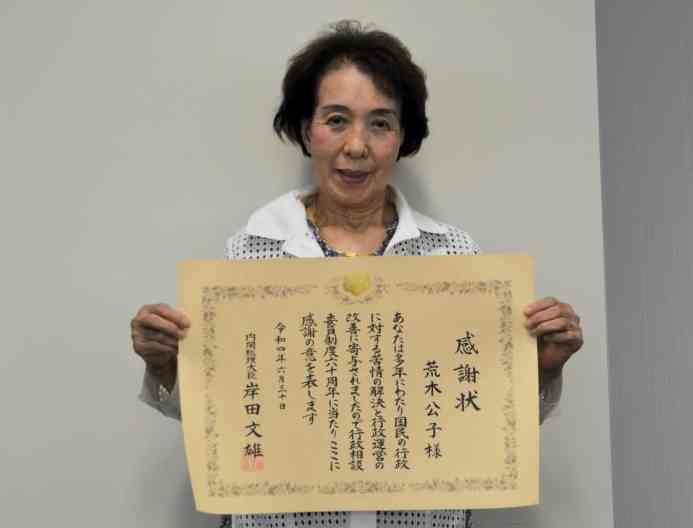 感謝状
荒木公子様
あなたは多年にわたり国民の行政
に対する苦情の解決と行政運営の
改善に寄与されましたので行政相談
委員制度六十周年に当たりここに
感謝の意を表します
令和四年六月三十日
内閣総理大臣 岸田文雄